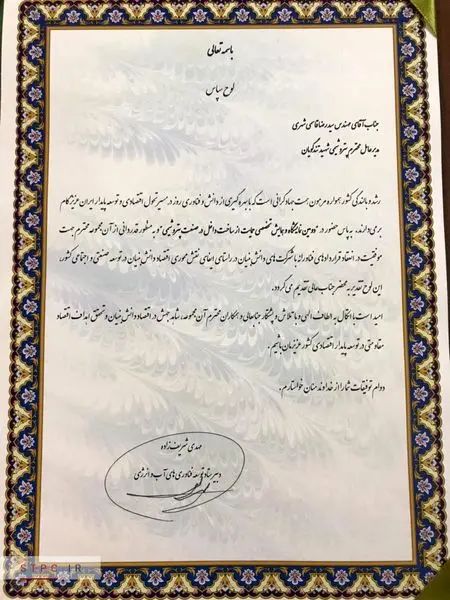 باسمه تعالی
لوح سپاس
جناب آقای مهندس سید رضا قاسمی شهری
مدیرعامل محترم پتروشیمی شهید تندگویان
رشد و بالندگی کشور همواره مرهون همت جهادگرانی است که با بهره گیری از دانش و فناوری روز در مسیر تحول اقتصادی و توسعه پایدار ایران عزیز گام
برمی دارند، به پاس حضور در «دومین نمایشگاه و همایش تخصصی حمایت از ساخت، دانش در صنعت پتروشیمی» و به منظور قدردانی از آن مجموعه محترم جهت
موفقیت در انعقاد قراردادهای فناورانه با شرکت های دانش بنیان در راستای ایفای نقش محوری اقتصاد دانش بنیان در توسعه صنعتی و اجتماعی کشور،
این لوح تقدیر به محضر جناب عالی تقدیم می گردد.
امید است با اتکال به الطاف الهی و با تلاش و پشتکار جنابعالی و همکاران محترم آن مجموعه، شاهد جهش در اقتصاد دانش بنیان و تحقق اهداف اقتصاد
مقاومتی در توسعه پایدار اقتصادی کشور عزیزمان باشیم.
دوام توفیقات شما را از خداوند منان خواستارم.
مهدی شریف زاده
دبیر ستاد توسعه فناوری های آب و انرژی
STPC.IR